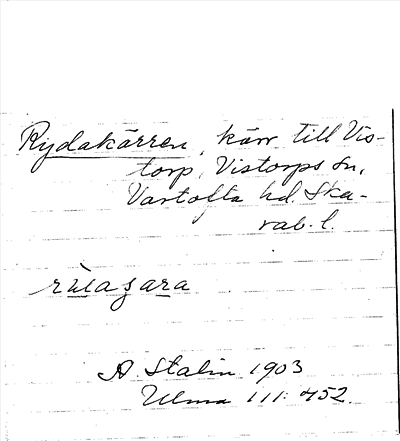 Rydakärren, kärr till Vis-
torp, Vistorps sn,
Vartofta hd. Ska-
rab. l.
A. Stalin 1903
Ulma 111: 452.